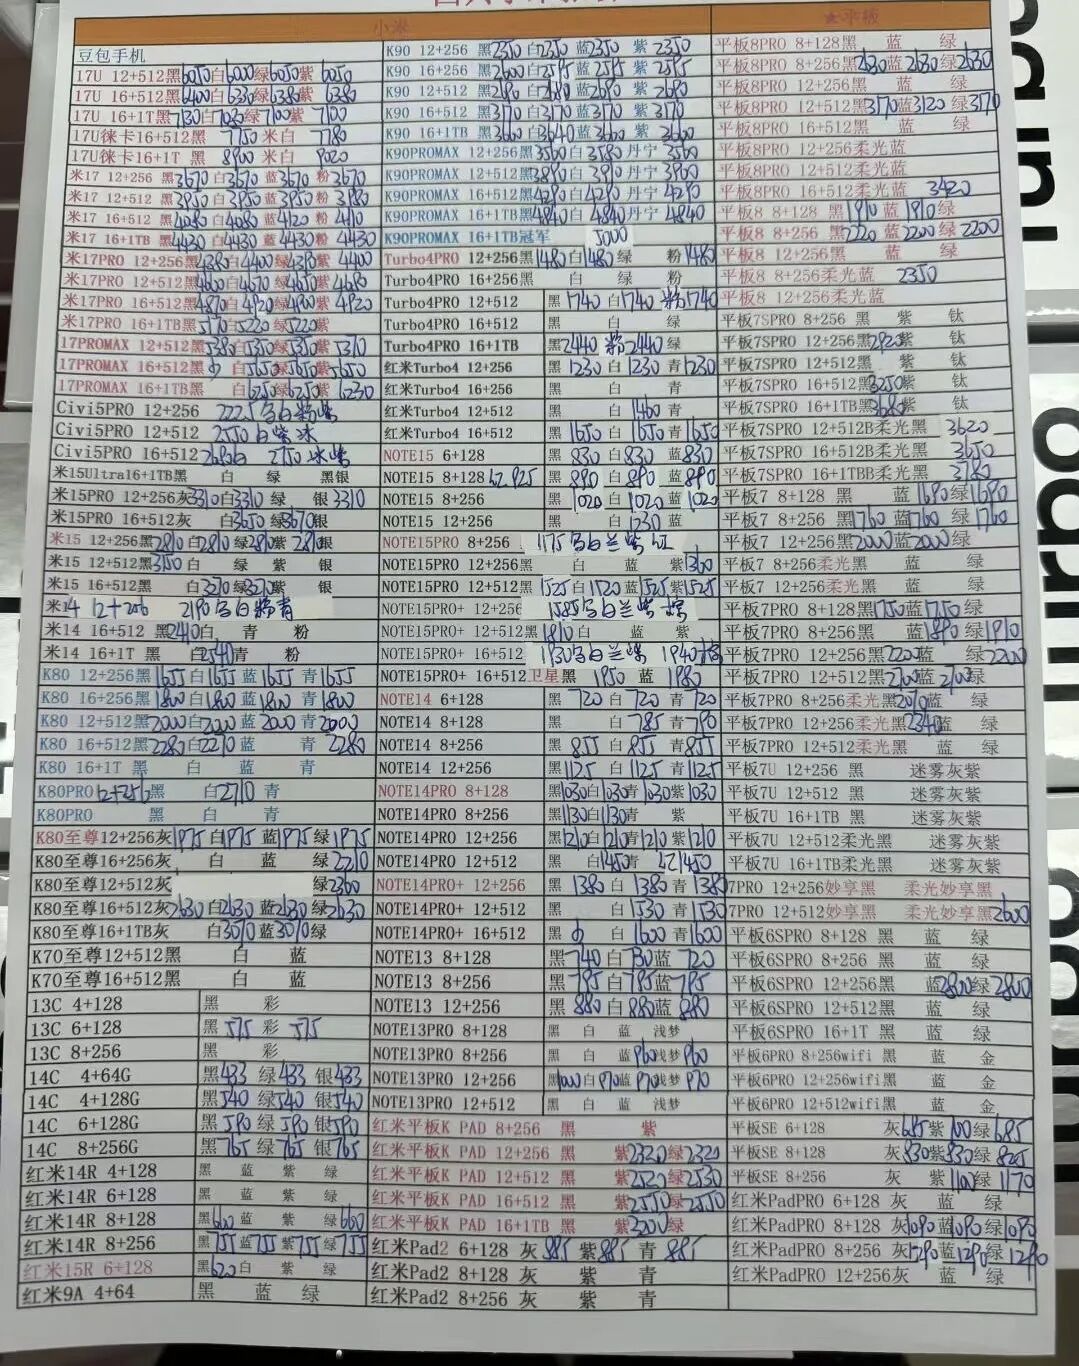 小米
豆包手机
17U 12+512黑6050白6000绿6050紫 6050
17U 16+512黑6400白6330绿6380紫 6380
17U 16+1T黑7130白7020绿7100紫 7100
17U徕卡16+512黑 7750 米白 7780
17U徕卡16+1T 黑 8900 米白 9020
米17 12+256 黑3670白3670蓝3670 粉3670
米17 12+512黑3950白3950蓝3950 粉3980
米17 16+512 黑4080白4080蓝4120 粉4110
米17 16+1TB 黑4430白4430蓝4430粉 4430
米17PRO 12+256黑4380白4400绿4390紫 4400
米17PRO 12+512黑4660白4670绿4650紫4680
米17PRO 16+512黑4870白4920绿4900紫4920
米17PRO 16+1TB黑5170白5220绿5220紫
17PROMAX 12+512黑5380白5350绿5350紫5370
17PROMAX 16+512黑 白5650绿5650紫5650
17PROMAX 16+1TB黑 白6250绿6250紫6230
Civi5PRO 12+256 2225乌白粉紫
Civi5PRO 12+512 2550白紫冰
Civi5PRO 16+512 2680白 2750冰紫
米15Ultra16+1TB黑 白 绿 黑银
米15PRO 12+256灰3310白3310 绿 银3310
米15PRO 16+512灰 白3650绿3670银
米15 12+256黑2810白2810绿2810紫2810银
米15 12+512黑3150白 绿 紫 银
米15 16+512黑 白3270绿3270紫 银
米14 12+256 2190乌白粉青
米14 16+512 黑2410白 青 粉
米14 16+1T 黑 白2540青 粉
K80 12+256黑1655白1655蓝1655 青1655
K80 16+256黑1800白1800蓝1800 青1800
K80 12+512黑2000白2000蓝2000 青2000
K80 16+512黑2280白2270蓝 青2280
K80 16+1T 黑 白 蓝 青
K80PRO12+256黑 白2710青
K80PRO 黑 白 青
K80至尊12+256灰1975白1975蓝1975绿1975
K80至尊16+256灰 白 蓝 绿2210
K80至尊12+512灰 绿2360
K80至尊16+512灰2630白2630蓝2630绿2630
K80至尊16+1TB灰 白3070蓝3070绿
K70至尊12+512黑 白 蓝
K70至尊16+512黑 白 蓝
13C 4+128 黑 彩
13C 6+128 黑575 彩 575
13C 8+256 黑 彩
14C 4+64G 黑433 绿433 银433
14C 4+128G 黑540绿540 银540
14C 6+128G 黑590绿590 银590
14C 8+256G 黑765绿765 银765
红米14R 4+128 黑 蓝 紫 绿
红米14R 6+128 黑 蓝 紫 绿
红米14R 8+128 黑660蓝 紫 绿660
红米14R 8+256 黑755蓝755紫755绿755
红米15R 6+128 黑620白 紫 绿
红米9A 4+64 黑 蓝 绿
K90 12+256 黑2350白2350蓝2350 紫2350
K90 16+256 黑2600白2595蓝2595 紫2595
K90 12+512 黑2690白2680蓝2690 紫2690
K90 16+512 黑3170白3170蓝3170 紫3170
K90 16+1TB 黑3660白3640蓝3660 紫3660
K90PROMAX 12+256黑3560白3580丹宁3560
K90PROMAX 12+512黑3890白3910丹宁3960
K90PROMAX 16+512黑4290白4290丹宁4290
K90PROMAX 16+1TB黑4840白4840丹宁4840
K90PROMAX 16+1TB冠军 5000
Turbo4PRO 12+256黑1480白1480绿 粉1480
Turbo4PRO 16+256黑 白 绿 粉
Turbo4PRO 12+512 黑1740白1740粉1740
Turbo4PRO 16+512 黑 白 绿
Turbo4PRO 16+1TB 黑2440粉2440绿
红米Turbo4 12+256 黑1230白1230青1230
红米Turbo4 16+256 黑 白 青
红米Turbo4 12+512 黑 白1460青
红米Turbo4 16+512 黑1650白1650青1650
NOTE15 6+128 黑830白830蓝830
NOTE15 8+128红925 黑890白890蓝895
NOTE15 8+256 黑1020白1020蓝1020
NOTE15 12+256 黑 白1230蓝
NOTE15PRO 8+256 1175乌白兰紫红
NOTE15PRO 12+256黑 白 蓝 紫1360
NOTE15PRO 12+512黑1525白1520蓝1525紫1525
NOTE15PRO+ 12+256 1585乌白兰紫棕
NOTE15PRO+ 12+512黑1810白 蓝 紫
NOTE15PRO+ 16+512 1930乌白兰紫 1940橘
NOTE15PRO+ 16+512卫星黑 1950 蓝 1980
NOTE14 6+128 黑720白720青720
NOTE14 8+128 黑 白785青790
NOTE14 8+256 黑855白855青855
NOTE14 12+256 黑1125白1125青1125
NOTE14PRO 8+128 黑1030白1030青1030紫1030
NOTE14PRO 8+256 黑1130白1130青 紫
NOTE14PRO 12+256 黑1210白1210青1210紫1210
NOTE14PRO 12+512 黑 白1450青 红1450
NOTE14PRO+ 12+256 黑1380白1380青1380
NOTE14PRO+ 12+512 黑 白1530青1530
NOTE14PRO+ 16+512 黑 白1600青1600
NOTE13 8+128 黑740白730蓝720
NOTE13 8+256 黑795白785蓝785
NOTE13 12+256 黑880白880蓝880
NOTE13PRO 8+128 黑 白 蓝 浅梦
NOTE13PRO 8+256 黑 白 蓝960浅梦960
NOTE13PRO 12+256 黑1000白970蓝970浅梦970
NOTE13PRO 12+512 黑 白 蓝 浅梦
红米平板K PAD 8+256 黑 紫
红米平板K PAD 12+256 黑 紫2320绿2320
红米平板K PAD 12+512 黑 紫2520绿2530
红米平板K PAD 16+512 黑 紫2550绿2550
红米平板K PAD 16+1TB 黑 紫3200绿
红米Pad2 6+128 灰885紫885青885
红米Pad2 8+128 灰 紫 青
红米Pad2 8+256 灰 紫 青
★平板
平板8PRO 8+128黑 蓝 绿
平板8PRO 8+256黑2630蓝2630绿2630
平板8PRO 12+256黑 蓝 绿
平板8PRO 12+512黑3170蓝3120绿3170
平板8PRO 16+512黑 蓝 绿
平板8PRO 12+256柔光蓝
平板8PRO 12+512柔光蓝
平板8PRO 16+512柔光蓝 3420
平板8 8+128 黑1910蓝1910绿
平板8 8+256 黑2220蓝2200绿2200
平板8 12+256黑 蓝 绿
平板8 8+256柔光蓝 2350
平板8 12+256柔光蓝
平板7SPRO 8+256 黑 紫 钛
平板7SPRO 12+256黑2920紫 钛
平板7SPRO 12+512黑 紫 钛
平板7SPRO 16+512黑3250紫 钛
平板7SPRO 16+1TB黑3680紫 钛
平板7SPRO 12+512B柔光黑 3620
平板7SPRO 16+512B柔光黑 3650
平板7SPRO 16+1TBB柔光黑 3780
平板7 8+128 黑 蓝1690绿1690
平板7 8+256 黑1760蓝1760绿1760
平板7 12+256黑2000蓝2000绿
平板7 8+256柔光黑 蓝 绿
平板7 12+256柔光黑 蓝 绿
平板7PRO 8+128黑1750蓝1750绿
平板7PRO 8+256黑 蓝1890绿1910
平板7PRO 12+256黑2200蓝 绿2200
平板7PRO 12+512黑 蓝2700绿
平板7PRO 8+256柔光黑2070蓝 绿
平板7PRO 12+256柔光黑2340蓝 绿
平板7PRO 12+512柔光黑 蓝 绿
平板7U 12+256 黑 迷雾灰紫
平板7U 12+512 黑 迷雾灰紫
平板7U 16+1TB 黑 迷雾灰紫
平板7U 12+512柔光黑 迷雾灰紫
平板7U 16+1TB柔光黑 迷雾灰紫
7PRO 12+256妙享黑 柔光妙享黑
7PRO 12+512妙享黑 柔光妙享黑2600
平板6SPRO 8+128 黑 蓝 绿
平板6SPRO 8+256黑 蓝 绿
平板6SPRO 12+256黑 蓝2800绿2800
平板6SPRO 12+512黑 蓝 绿
平板6SPRO 16+1T黑 蓝 绿
平板6PRO 8+256wifi 黑 蓝 金
平板6PRO 12+256wifi黑 蓝 金
平板6PRO 12+512wifi黑 蓝 金
平板SE 6+128 灰685紫700绿685
平板SE 8+128 灰830紫830绿825
平板SE 8+256 灰 紫1100绿1170
红米PadPRO 6+128 灰 蓝 绿
红米PadPRO 8+128 灰1090蓝1090绿1090
红米PadPRO 8+256灰1290蓝1290绿1290
红米PadPRO 12+256灰 蓝 绿